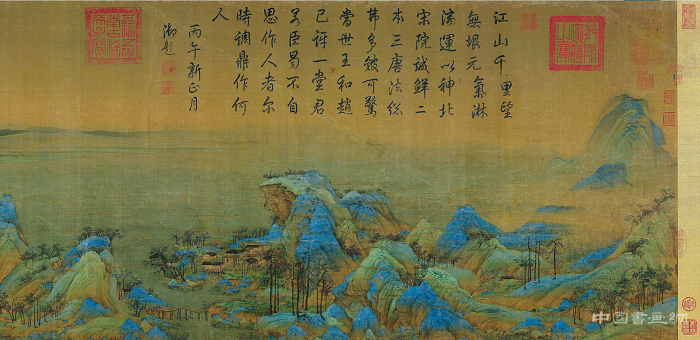 江山千里望
無垠元氣淋
漓運以神北
宋院誠鮮二
本三唐法総
弗多皴可驚
當世王和趙
已訝一堂君
若臣曷不自
思作人者尔
時調鼎作何
人
丙午新正月
御題
中國書画網